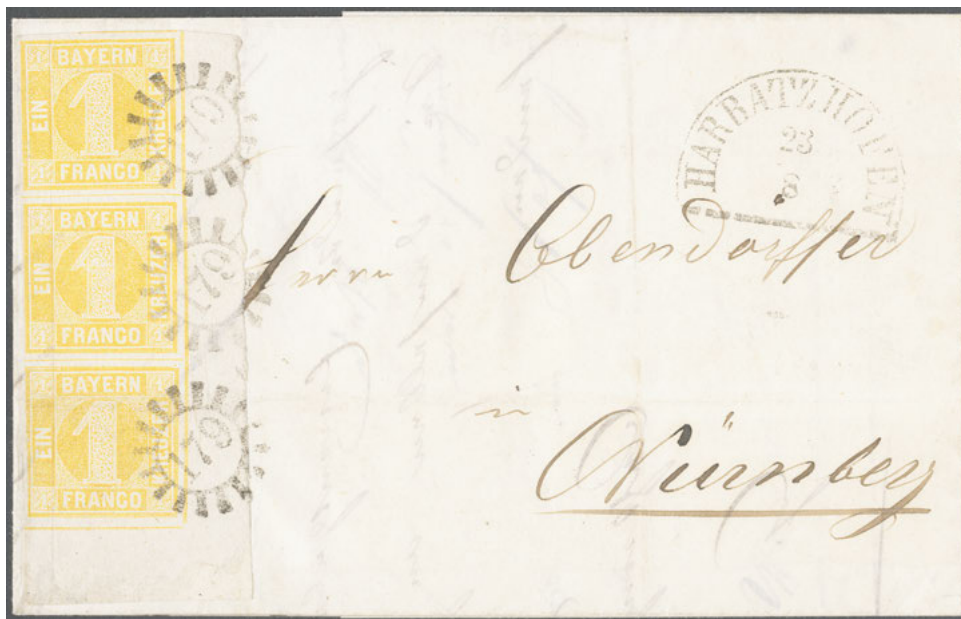 1 BAYERN 1
EIN 1 KREUZER
1 FRANCO 1
179
1 BAYERN 1
EIN 1 KREUZER
1 FRANCO 1
179
1 BAYERN 1
EIN 1 KREUZER
1 FRANCO
179
HARBATZHOFEN
23
8
Herrn Ebendorffer
in
Nürnberg